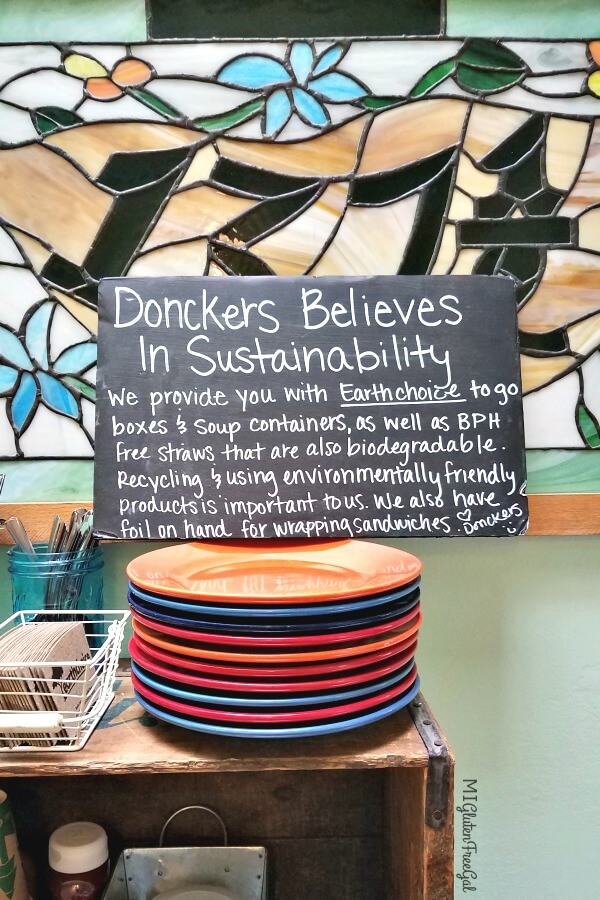 Donckers Believes
In Sustainability
We provide you with Earthchoice to go
boxes & soup containers, as well as BPH
free straws that are also biodegradable.
Recycling & using environmentally friendly
products is important to us. We also have
foil on hand for wrapping sandwiches. ♡ Donckers
MIGlutenFreeGal